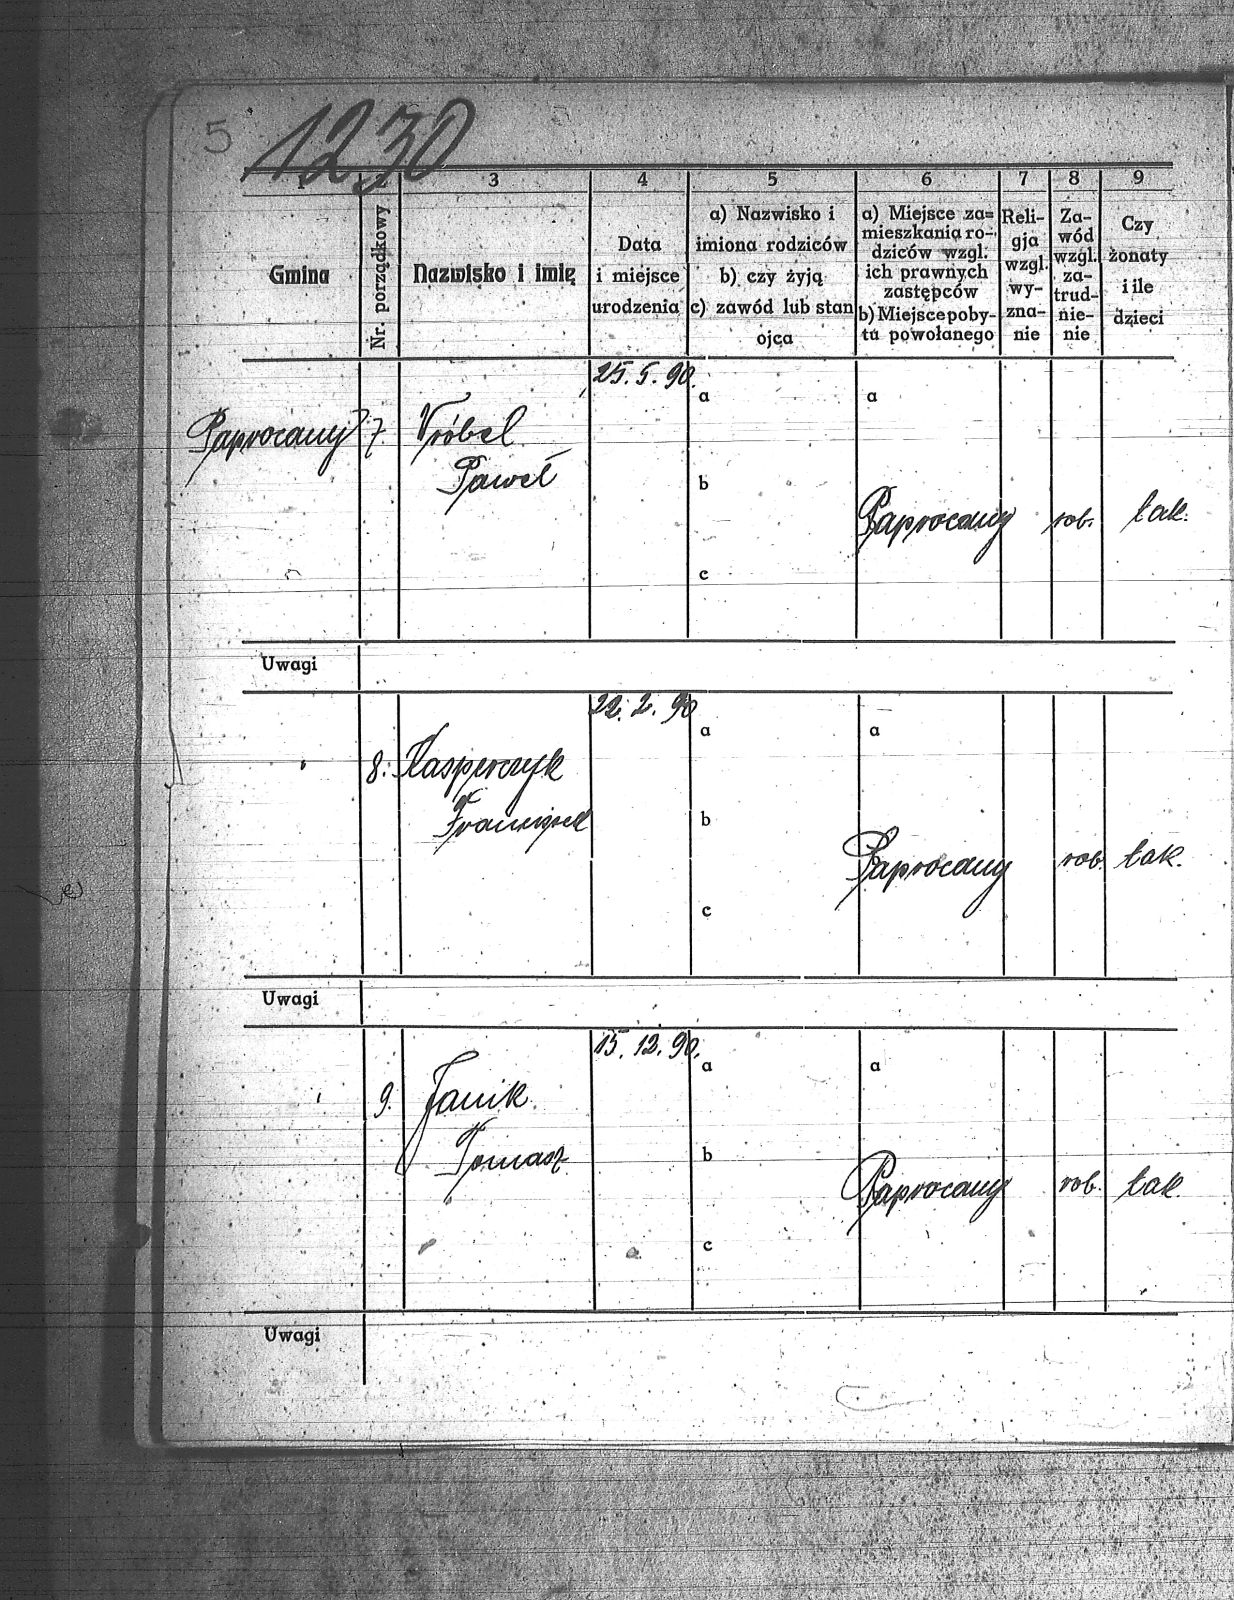 5 1230
1 2 3 4 5 6 7 8 9
Gmina
Nr. porządkowy
Nazwisko i imię
Data
i miejsce
urodzenia
a) Nazwisko i
imiona rodziców
b) czy żyją
c) zawód lub stan
ojca
a) Miejsce za=
mieszkania ro-
dziców wzgl.
ich prawnych
zastępców
b) Miejsce poby-
tu powołanego
Reli-
gja
wzgl.
wy-
zna-
nie
Za-
wód
wzgl.
za-
trud-
nie-
nie
Czy
żonaty
i ile
dzieci
25.5.90.
a a
Paprocany 7. Vróbel
Paweł
b
Paprocany rob. tak.
c
Uwagi
22.2.90
a a
" 8. Kasperczyk
Franciszek
b
Paprocany rob. tak.
c
Uwagi
15.12.90.
a a
" 9. Janik
Tomasz
b
Paprocany rob. tak.
c
Uwagi